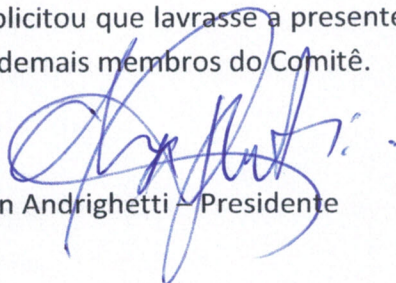 olicitou que lavrasse a presente
demais membros do Comitê.
n Andrighetti – Presidente